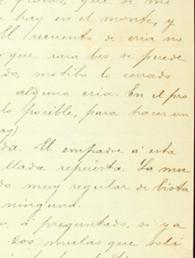 gracias, que si me
hay en el monte, y
El recuento de cria no
que rara bes se puede
do, motibo lo cerrado
alguna cria. En el pro
lo posible, para hacer un
ay)
da. El empadre á esta
llada repuesta. La mu
do muy regular de bista
ninguna.
o. á preguntado, si ya
202 mulas que soli